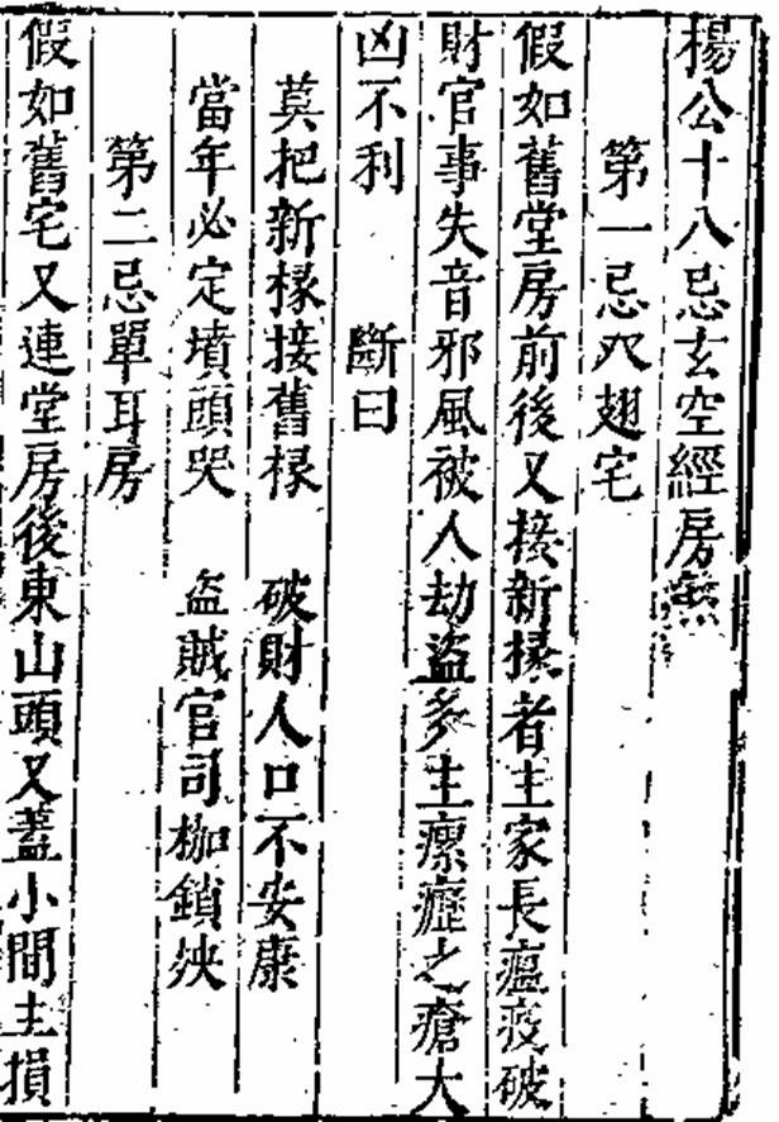 楊公十八忌玄空經房
第一忌八翅宅
假如舊堂房前後又接新椽者主家長瘟疫破
財官事失音邪風被人劫盜多主瘰癧之瘡大
凶不利 斷曰
莫把新椽接舊椽 破財人口不安康
當年必定墳頭哭 盜賊官司枷鎖殃
第二忌單耳房
假如舊宅又連堂房後東山頭又蓋小間主損